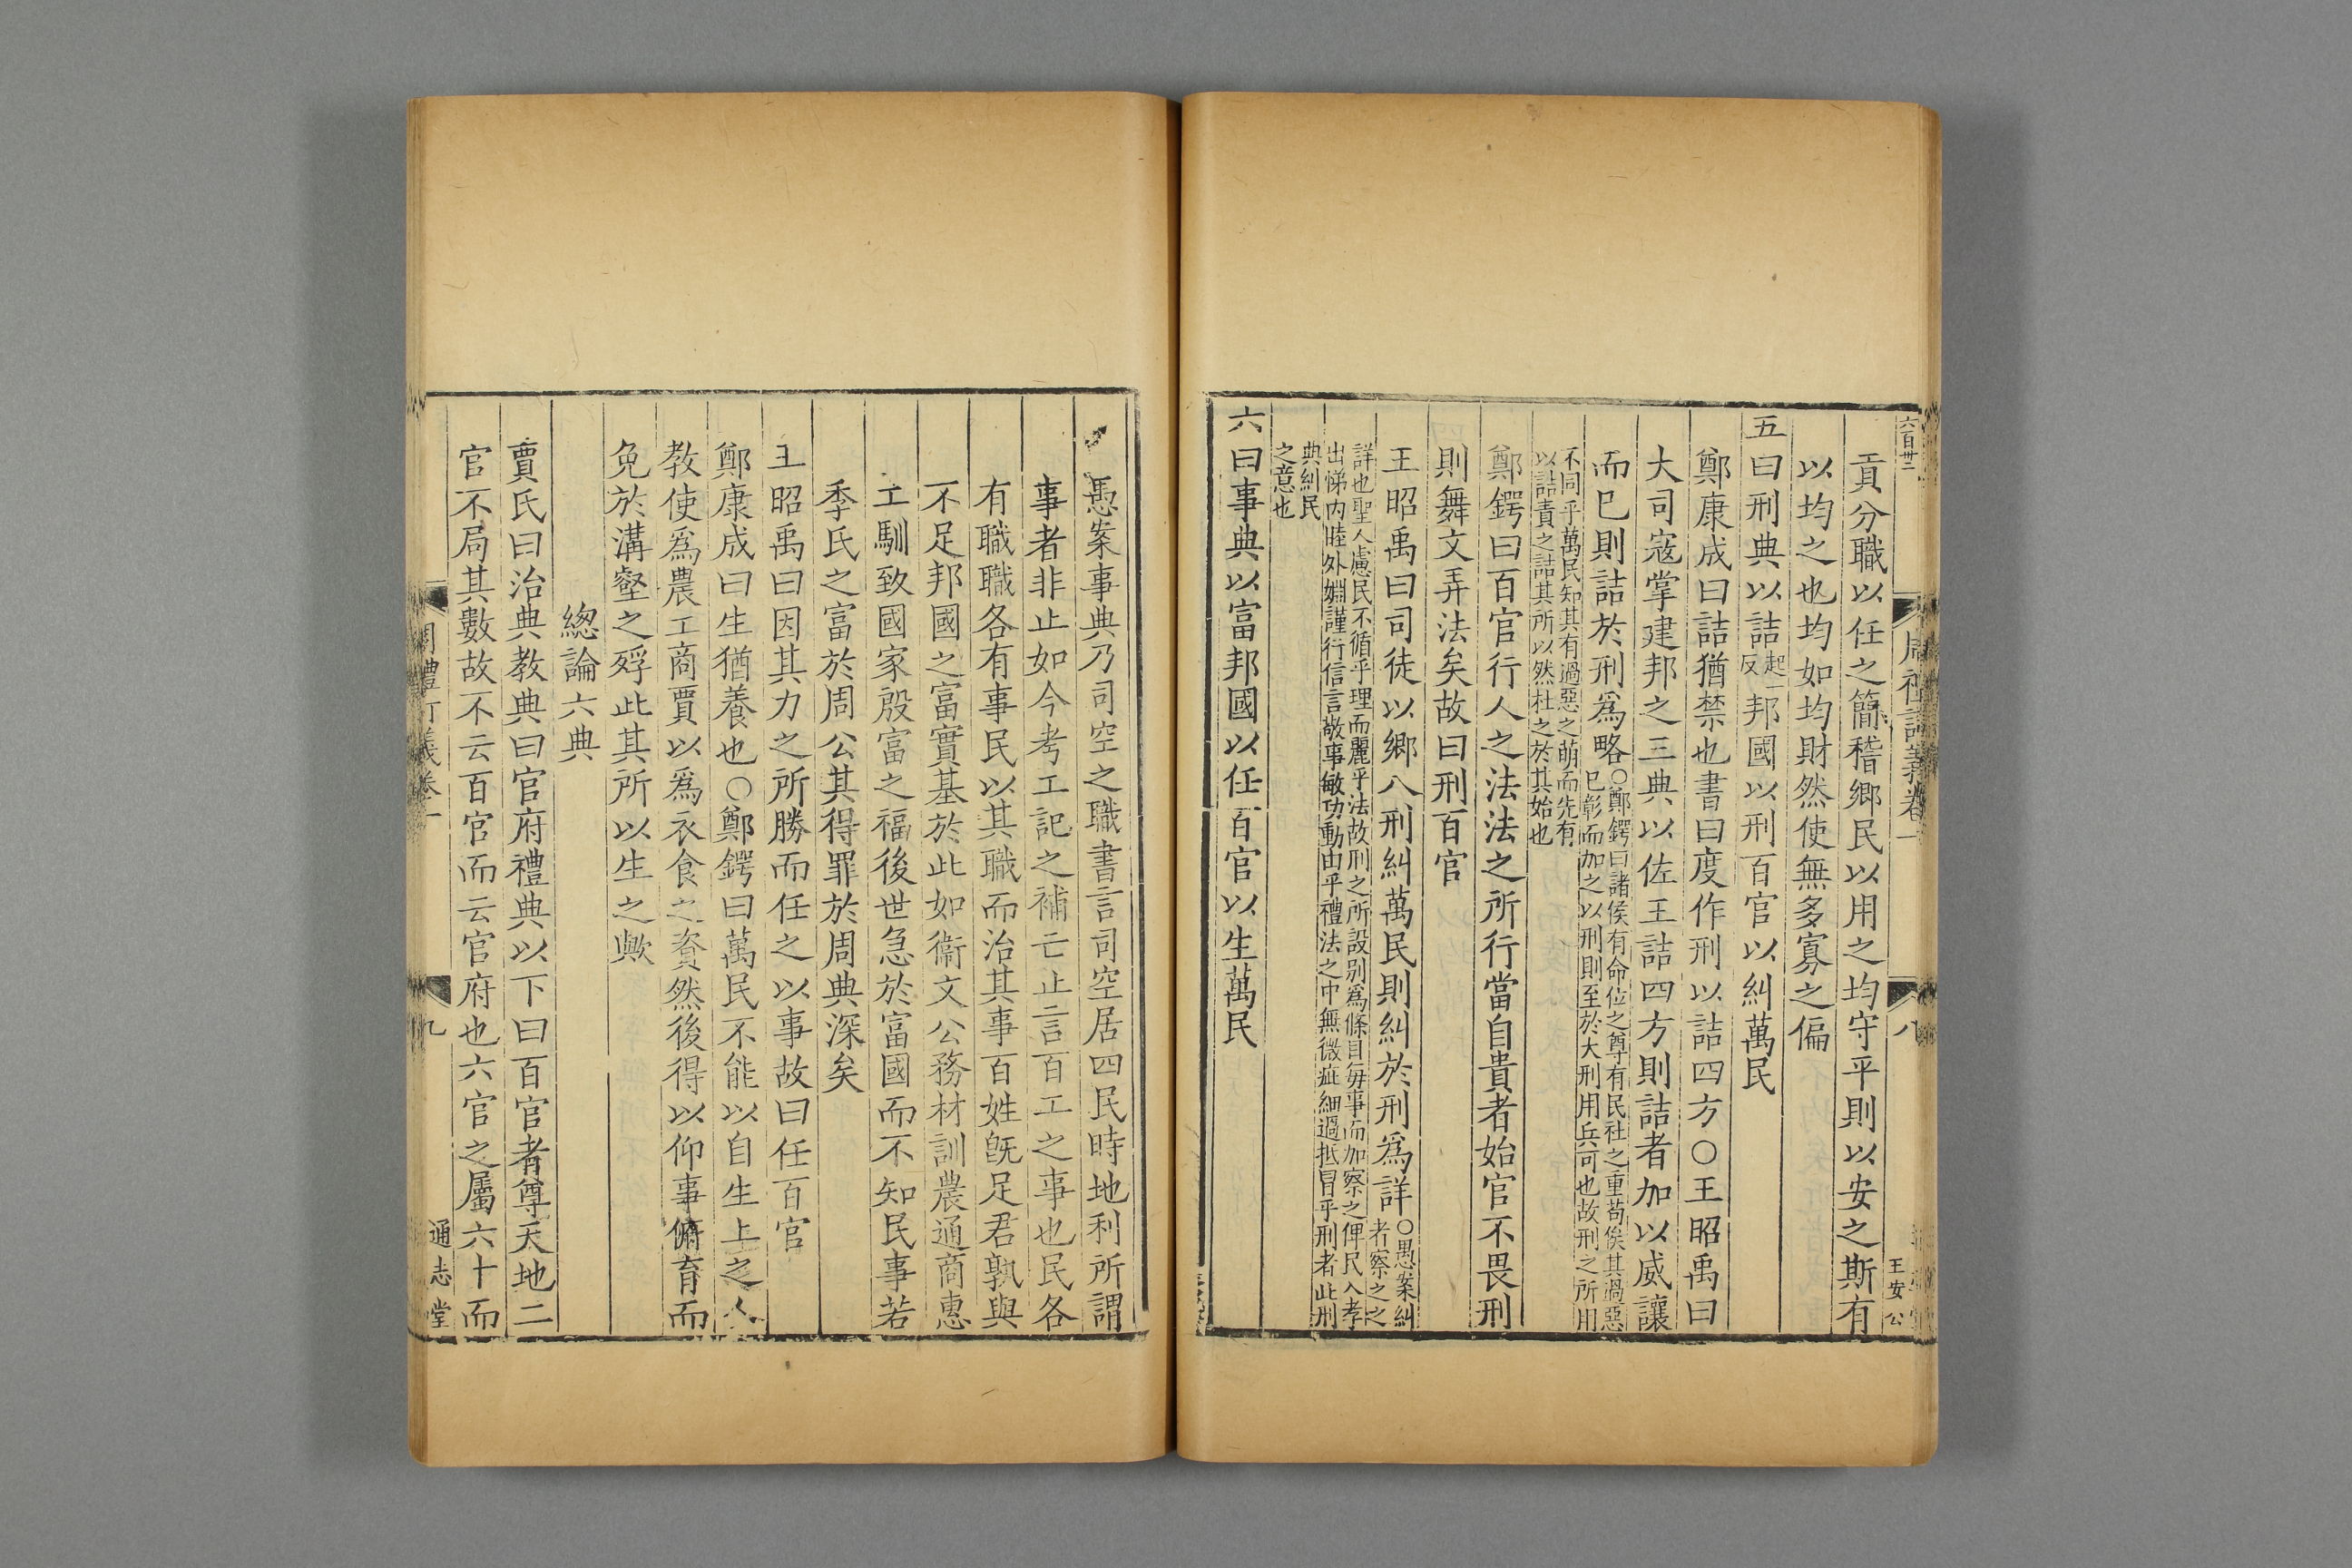 六百卅二
周禮訂義卷一
八
王安公
貢分職以任之簡稽鄉民以用之均守平則以安之斯有
以均之也均如均財然使無多寡之偏
五曰刑典以詰起一反邦國以刑百官以糾萬民
鄭康成曰詰猶禁也書曰度作刑以詰四方○王昭禹曰
大司寇掌建邦之三典以佐王詰四方則詰者加以威讓
而已則詰於刑爲略○鄭鍔曰諸侯有命位之尊有民社之重苟俟其過惡
已彰而加之以刑則至於大刑用兵可也故刑之所用
不同乎萬民知其有過惡之萌而先有
以詰責之詰其所以然杜之於其始也
鄭鍔曰百官行人之法法之所行當自貴者始官不畏刑
則舞文弄法矣故曰刑百官
王昭禹曰司徒以鄉八刑糾萬民則糾於刑爲詳○愚案糾
者察之之
詳也聖人慮民不循乎理而麗乎法故刑之所設别爲條目每事而加察之俾民入孝
出悌内睦外婣謹行信言敬事敏功動由乎禮法之中無微疵細過抵冒乎刑者此刑
典糾民
之意也
六曰事典以富邦國以任百官以生萬民
愚案事典乃司空之職書言司空居四民時地利所謂
事者非止如今考工記之補亡止言百工之事也民各
有職職各有事民以其職而治其事百姓旣足君孰與
不足邦國之富實基於此如衞文公務材訓農通商惠
工馴致國家殷富之福後世急於富國而不知民事若
季氏之富於周公其得罪於周典深矣
王昭禹曰因其力之所勝而任之以事故曰任百官
鄭康成曰生猶養也○鄭鍔曰萬民不能以自生上之人
教使爲農工商賈以爲衣食之資然後得以仰事俯育而
免於溝壑之殍此其所以生之歟
緫論六典
賈氏曰治典教典曰官府禮典以下曰百官者尊天地二
官不局其數故不云百官而云官府也六官之屬六十而
周禮訂義卷一
九
通志堂